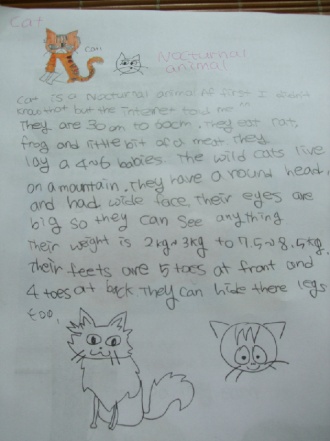 Cat
cat
Nocturnal
animal
Cat is a Nocturnal animal At first I didn't
know that but the internet told me ^^
They are 30cm to 60cm. They eat rat,
frog and little bit of a meat They
lay a 4~6 babies. The wild cats live
on a mountain. They have a round head,
and had wide face, Their eyes are
big so they can see anything
Their weight is 2kg~3kg to 7.5~8.5kg.
Their feets are 5 toes at front and
4 toes at back They can hide there legs
too.